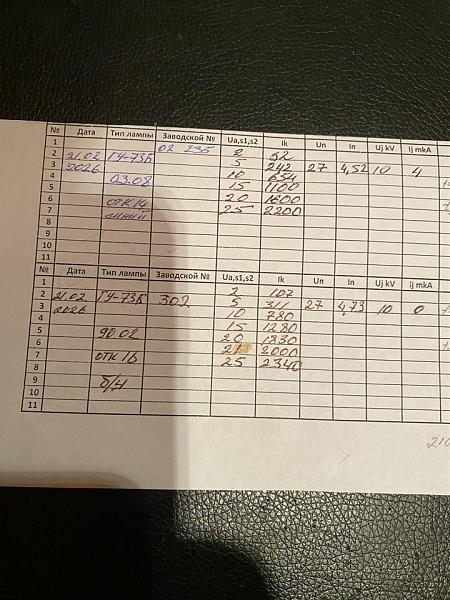 № Дата Тип лампы Заводской № Ua,s1,s2 Ik Un In Uj kV Ij mkA
1 02 235 2 52
2 21.02 ГУ-73Б 5 242 27 4,52 10 4
3 2026 10 654
4 03.08 15 1100
5 20 1600
6 ОТК 14 25 2200
7
8
9
10
11
№ Дата Тип лампы Заводской № Ua,s1,s2 Ik Un In Uj kV Ij mkA
1 2 107
2 21.02 ГУ-73Б 302 5 311 27 4,73 10 0
3 2026 10 780
4 15 1280
5 90.02 20 1830
6 2000
7 ОТК 16 25 2340
8
9 б/у
10
11
210